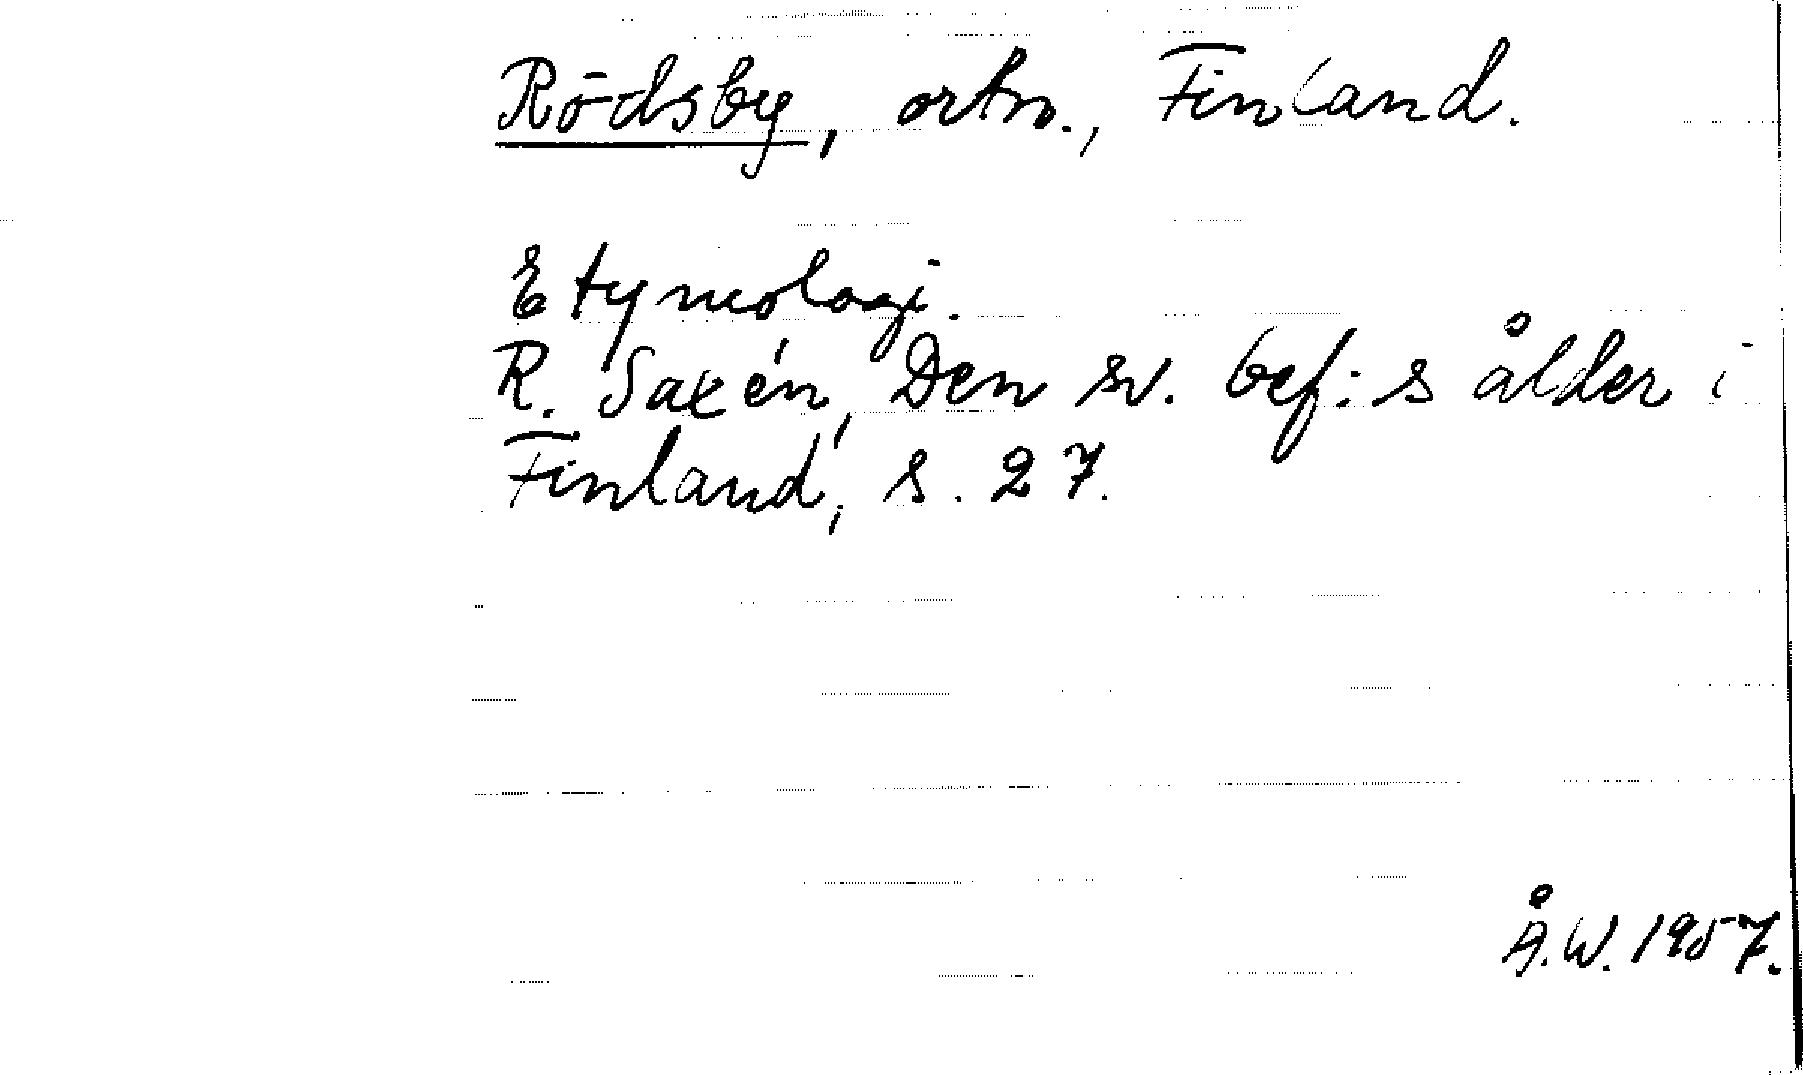 Rödsby, ortn., Finland.
Etymologi.
R. Saxén, Den sv. bef:s ålder i
Finland, s. 27.
Å.W. 1957.